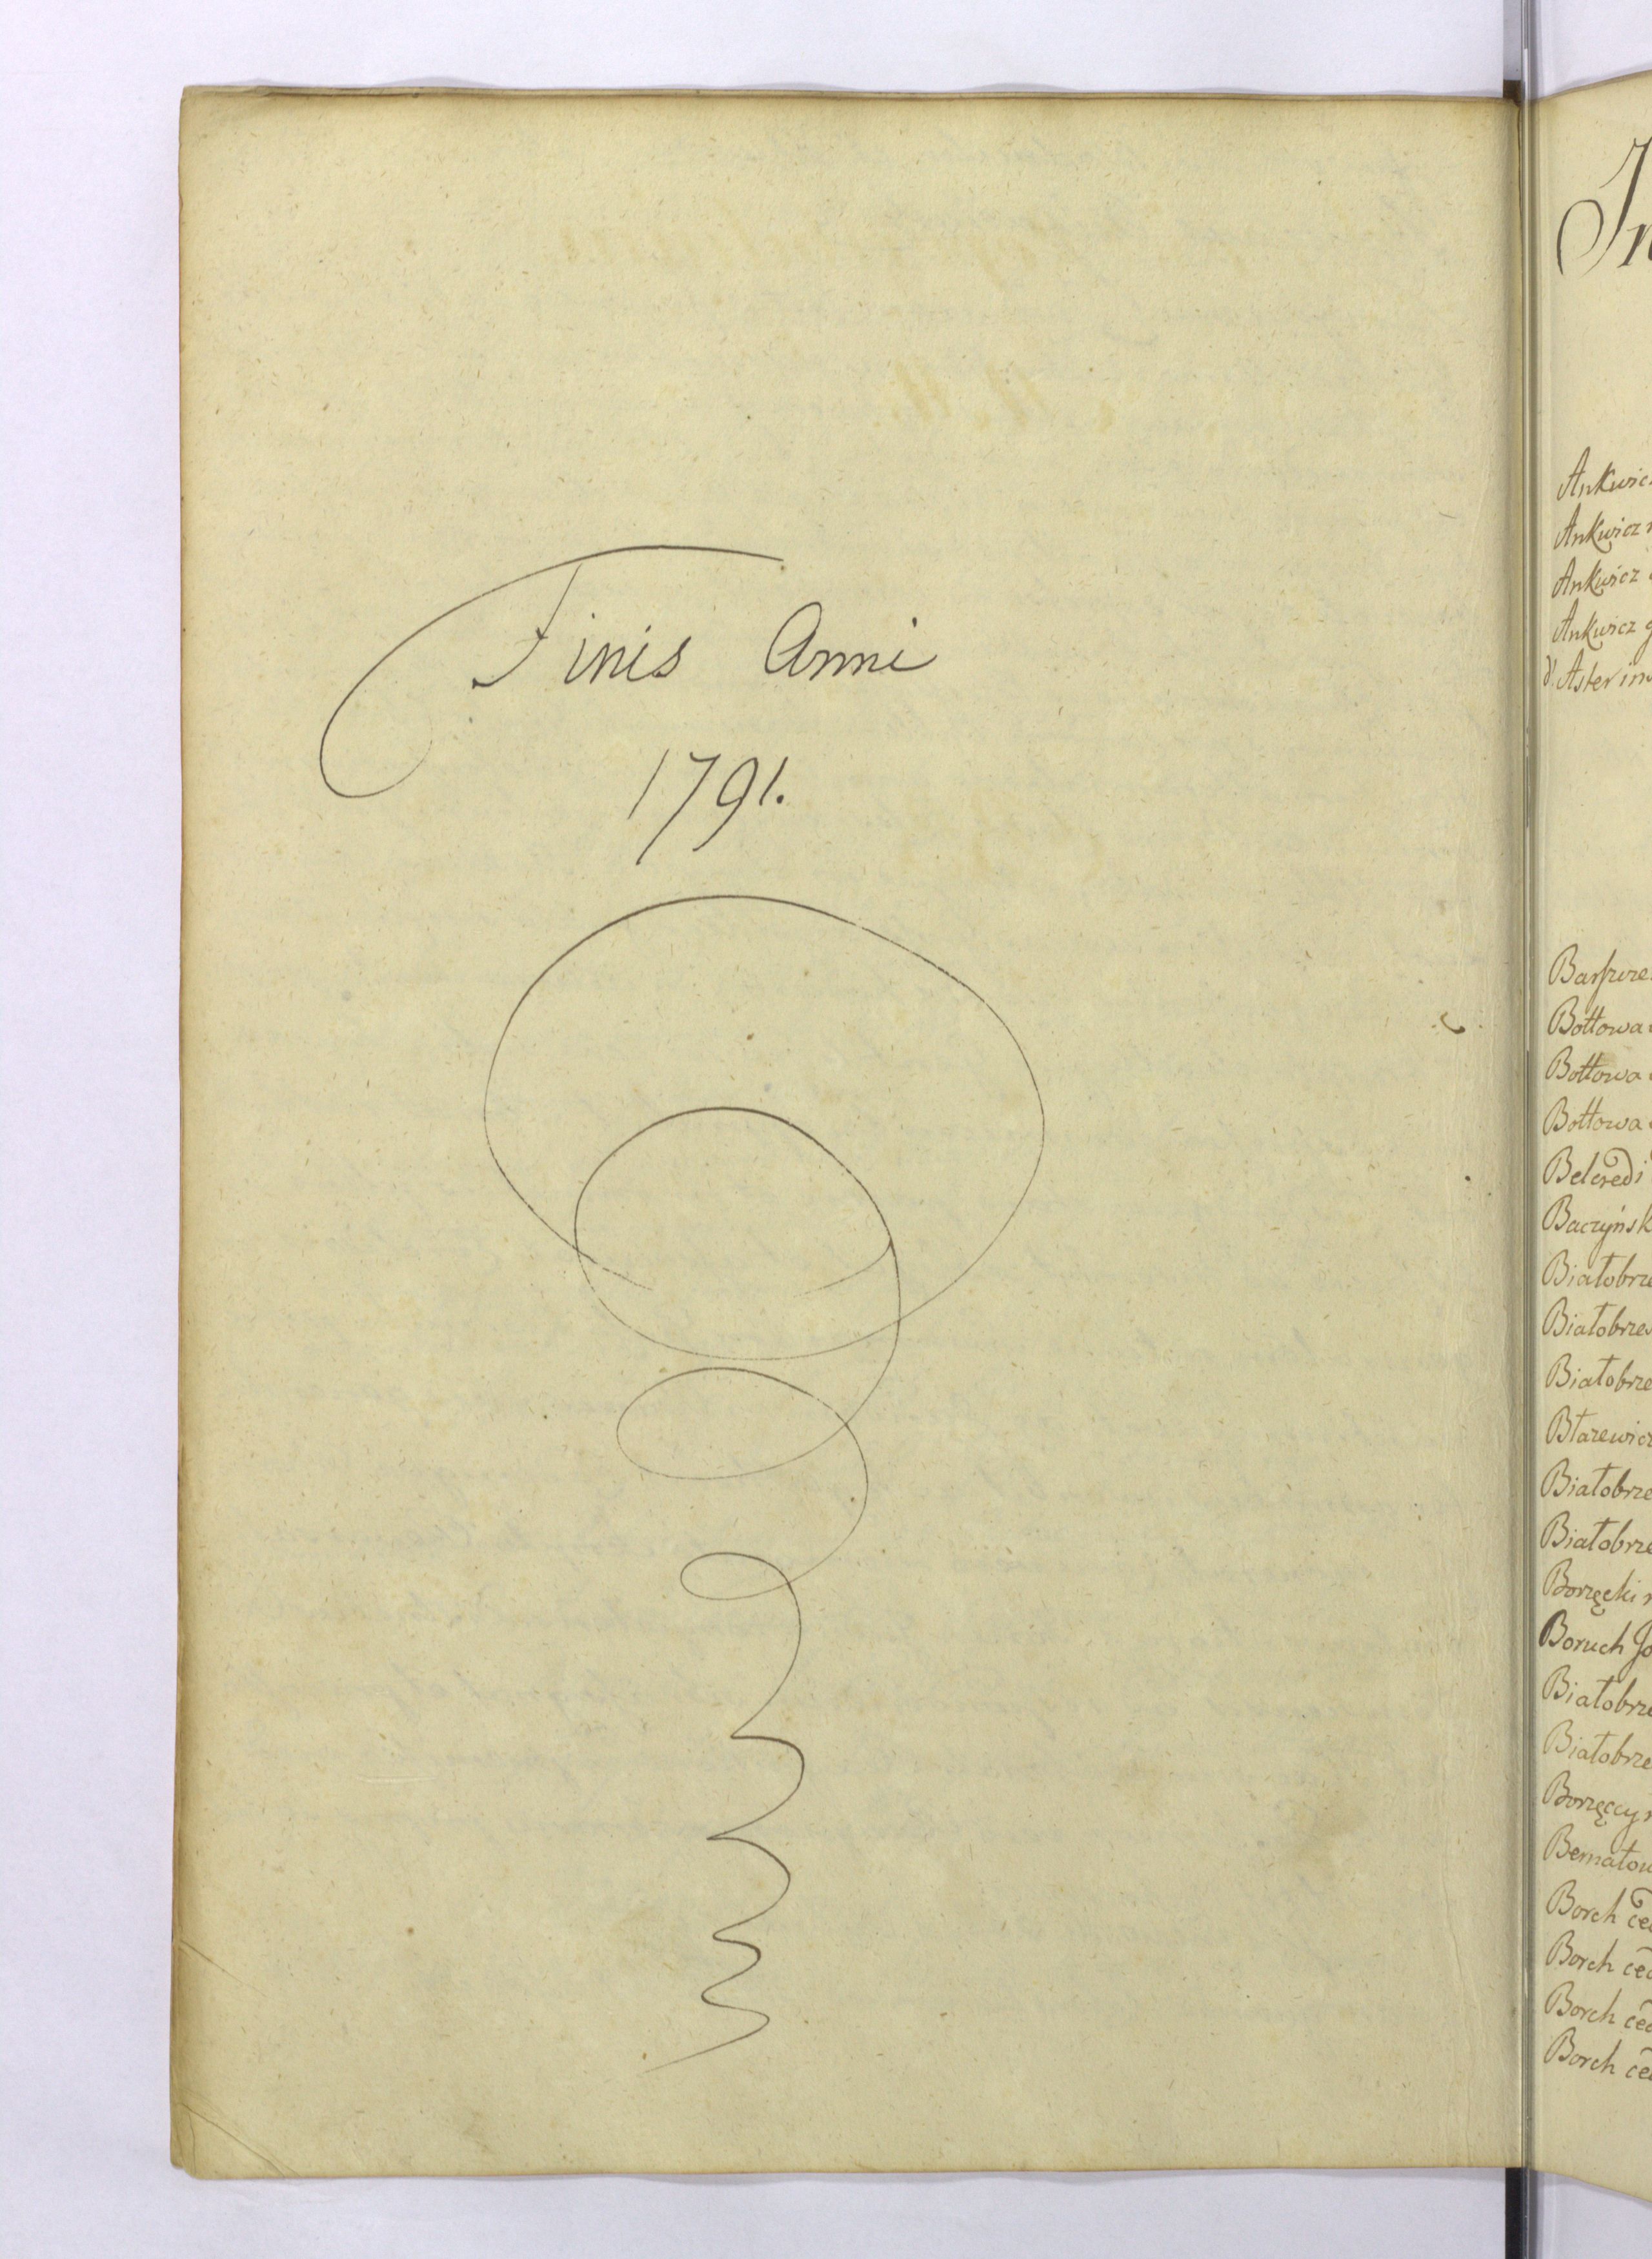 Finis Anni
1791.
In
Ankwic
Ankwicz
Ankwicz
Ankwicz
Bołłowa
Bołłowa
Bołłowa
Belcredi
Baczyńsk
Białobrze
Białobrze
Białobrze
Błazewicz
Białobrze
Białobrze
Borzęcki
Boruch Jo
Białobrze
Białobrze
Borzęccy
Bernatow
Borch
Borch
Borch
Borch